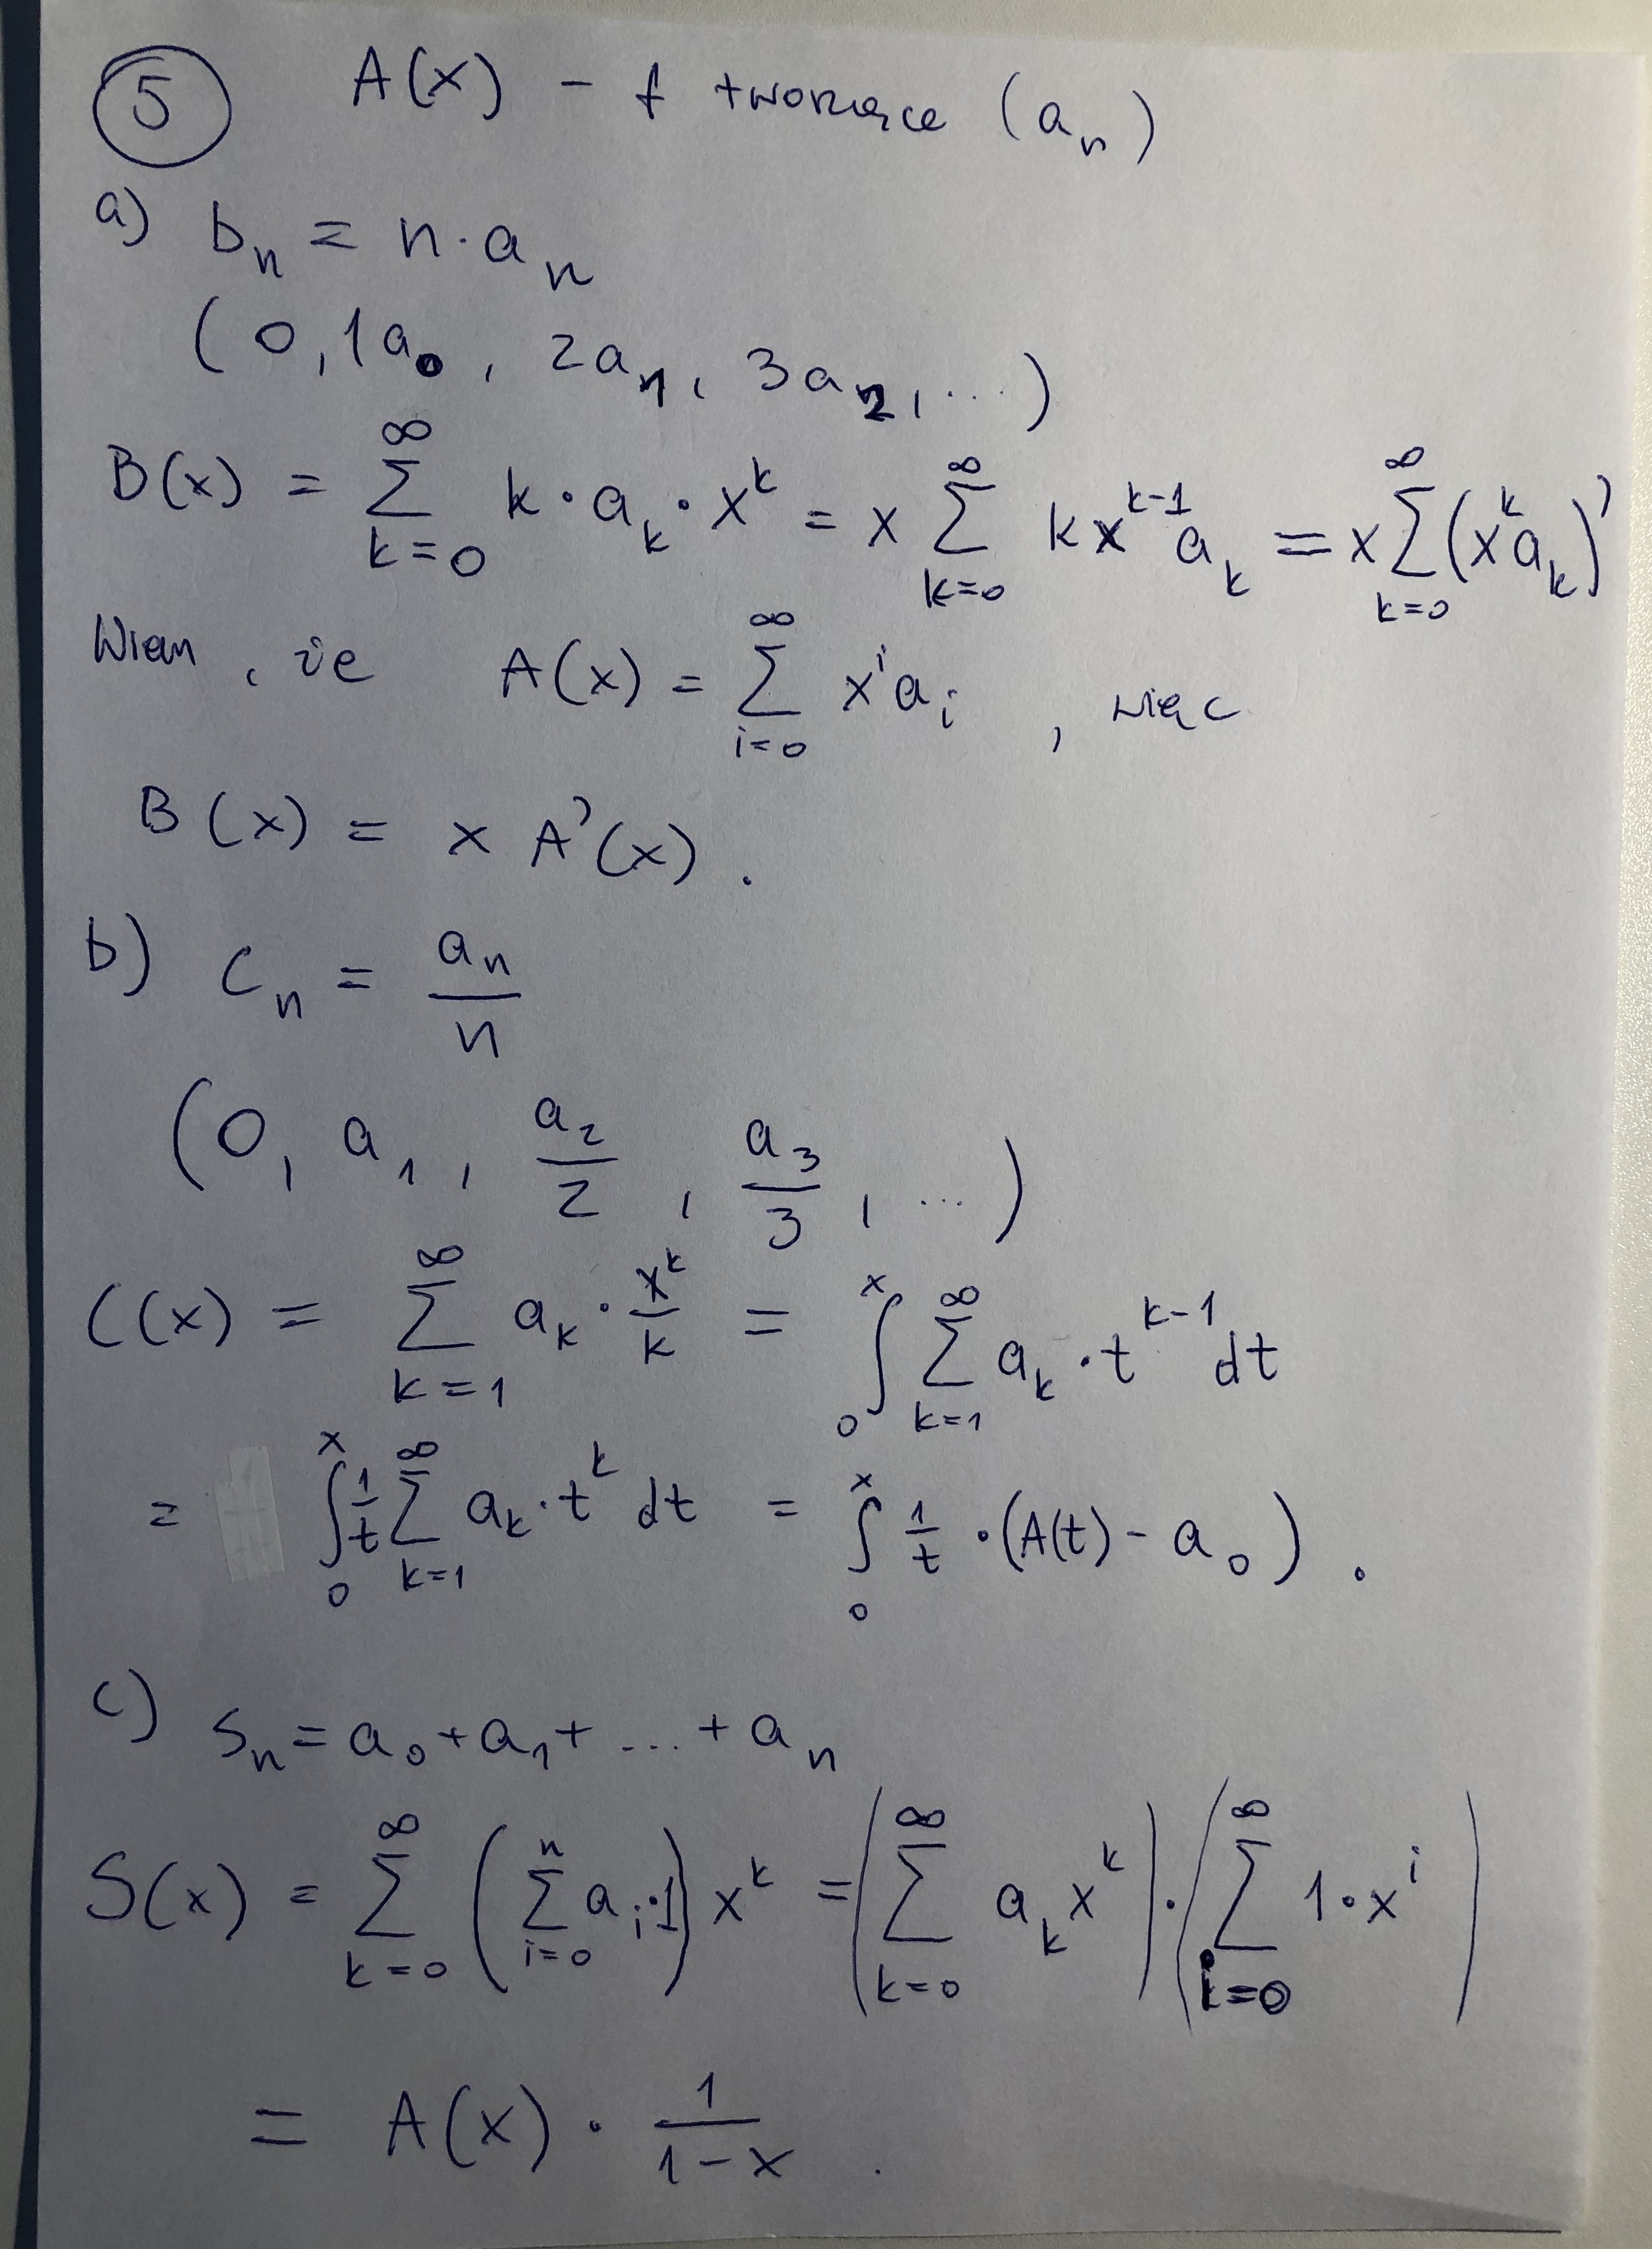 5 A(x) - f tworzące (aₙ)
a) bₙ = n·aₙ
(0, 1a₀, 2a₁, 3a₂, ...)
B(x) = ∑_{k=0}^{∞} k·a_k·x^k = x ∑_{k=0}^{∞} k x^{k-1} a_k = x ∑_{k=0}^{∞} (x^k a_k)'
Wiem, że A(x) = ∑_{i=0}^{∞} x^i a_i, więc
B(x) = x A'(x).
b) Cₙ = aₙ/n
(0, a₁, a₂/2, a₃/3, ...)
C(x) = ∑_{k=1}^{∞} a_k · x^k/k = ∫_0^x ∑_{k=1}^{∞} a_k · t^{k-1} dt
= ∫_0^x 1/t ∑_{k=1}^{∞} a_k · t^k dt = ∫_0^x 1/t · (A(t) - a₀).
c) Sₙ = a₀ + a₁ + ... + aₙ
S(x) = ∑_{k=0}^{∞} (∑_{i=0}^{n} a_i·1) x^k = (∑_{k=0}^{∞} a_k x^k) · (∑_{i=0}^{∞} 1·x^i)
= A(x) · 1/(1-x).